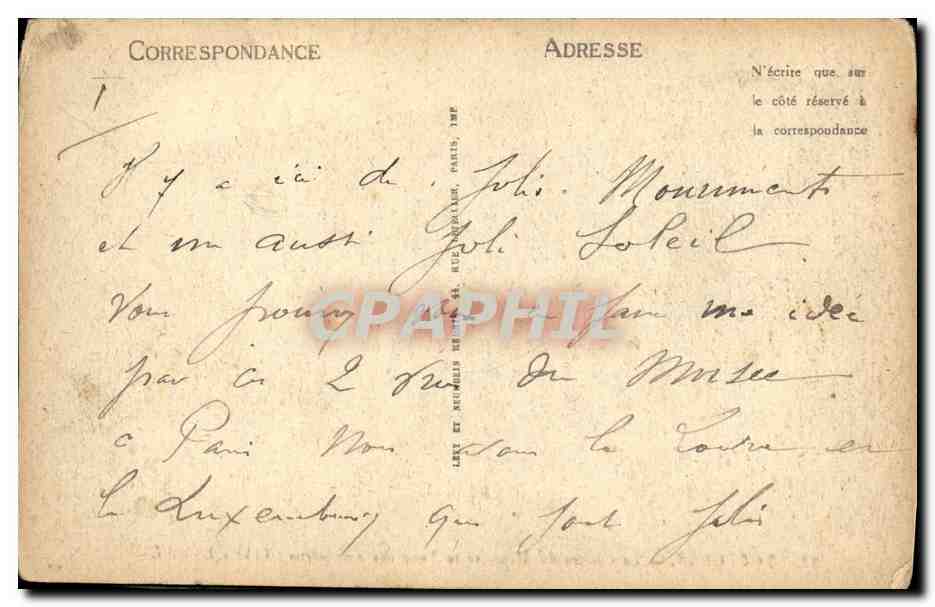 CORRESPONDANCE
ADRESSE
N'écrire que sur
le côté réservé à
la correspondance
LÉVY ET NEURDEIN RÉUNIS, 44, RUE LETELLIER, PARIS, IMP
CPAPHIL
Il y a ici de Jolis Monuments
et un aussi Joli Soleil
Vous pouvez vous en faire une idée
par ces 2 vues du Musee
a Paris Nous avons le Louvre et
le Luxembourg qui sont Jolis